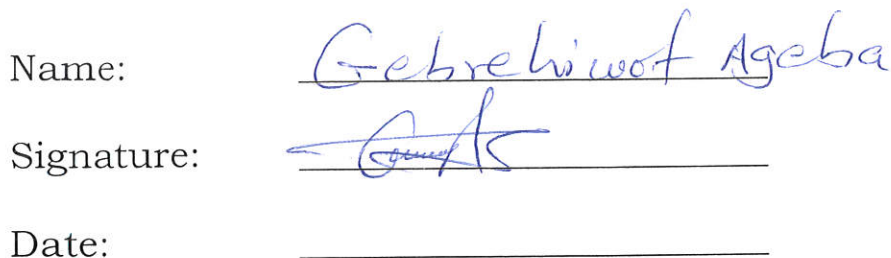 Name: Gebrehiwot Ageba
Signature:
Date: